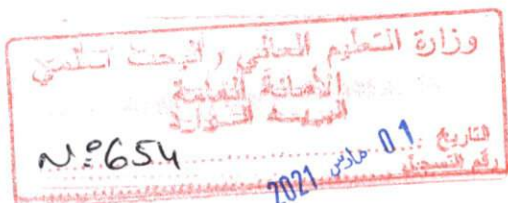 وزارة التعليم العالي و البحث العلمي
الأمانة العامة
التاريخ 01 مارس 2021
رقم التسجيل N°:654